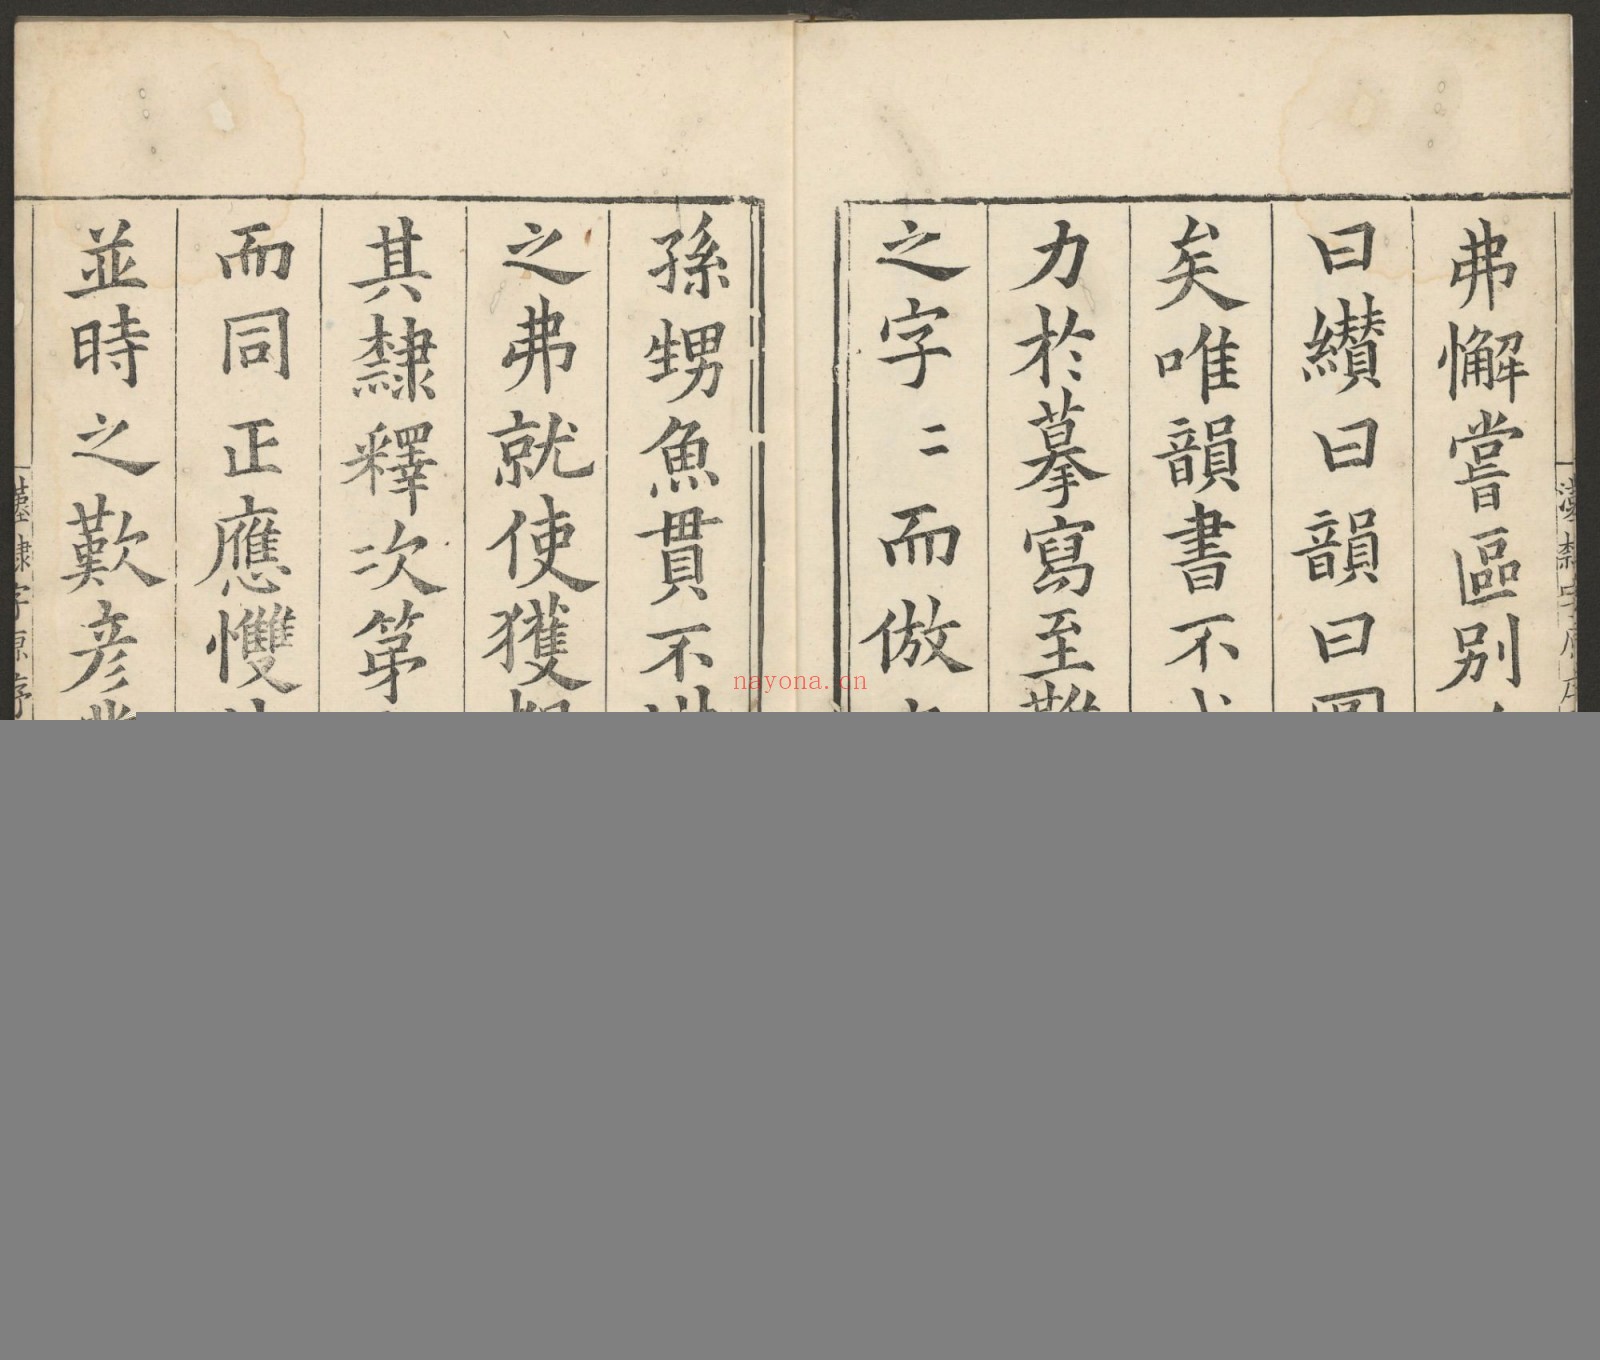 弗懈嘗區別
曰纉曰韻曰
矣唯韻書不
力於摹寫至難
之字〻而倣
孫甥魚貫不
之弗就使獲
其隸釋次第
而同正應慢
並時之歎彦
漢隸字原序
nayona.cn